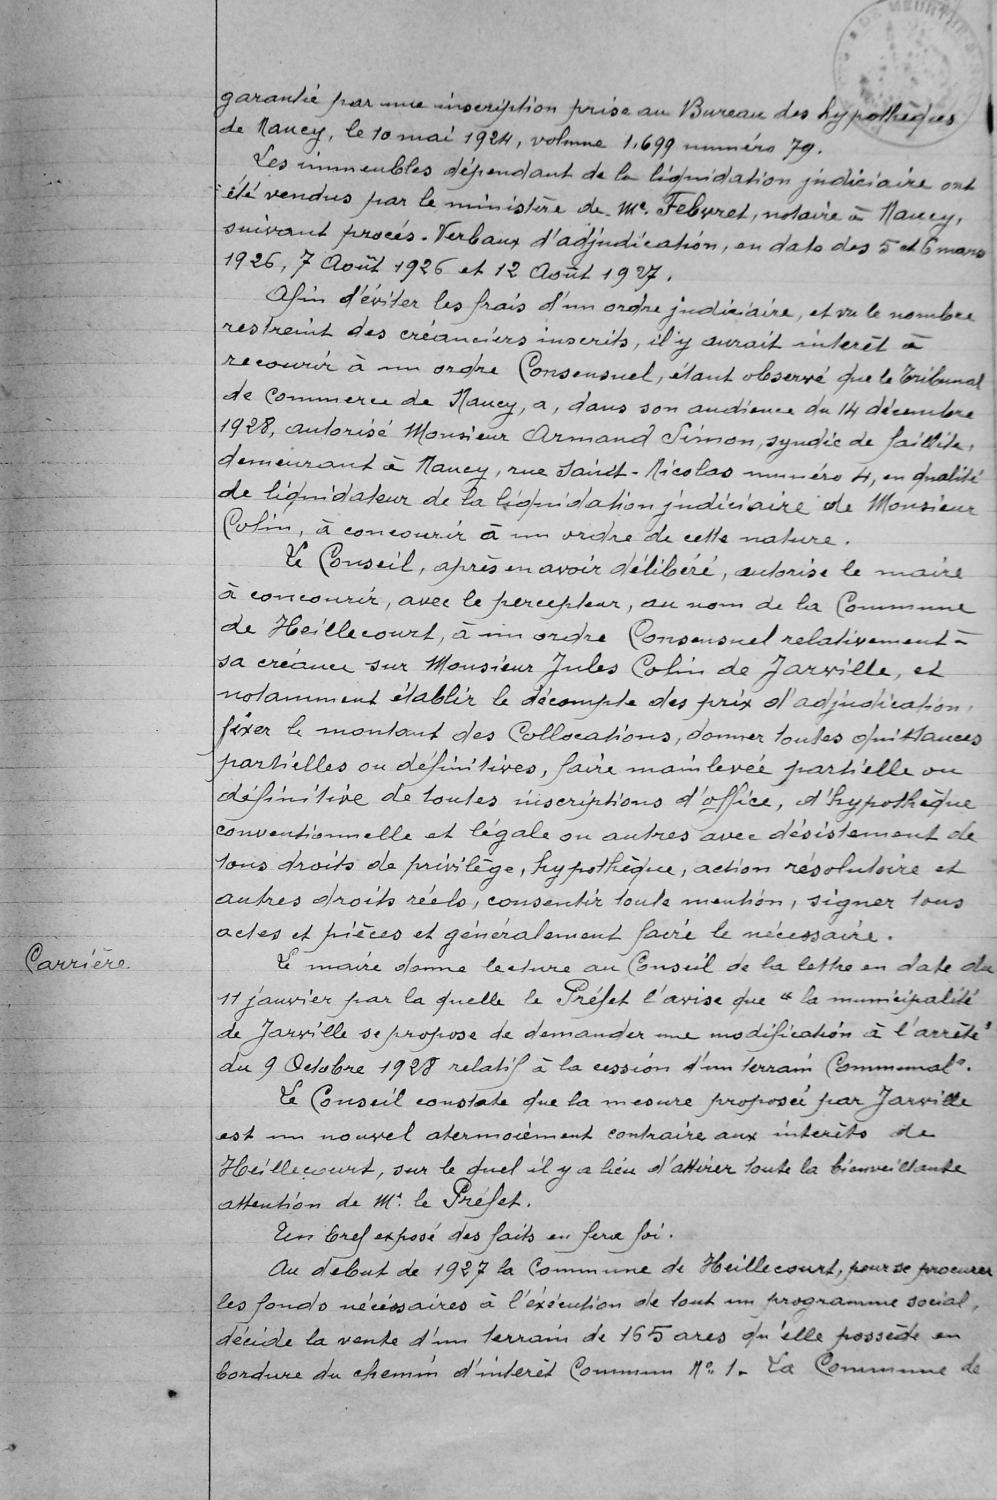 DE MEURTHE
garantié par une inscription prise au Bureau des hypothèques
de Nancy, le 10 mai 1924, volume 1.699 numéro 79.
Les immeubles dépendant de la liquidation judiciaire ont
été vendus par le ministère de Me. Febvret, notaire à Nancy,
suivant procès-Verbaux d'adjudication, en date des 5 et 6 mars
1926, 7 Août 1926 et 12 Août 1927.
Afin d'éviter les frais d'un ordre judiciaire, et vu le nombre
restreint des créanciers inscrits, il y aurait interêt à
recourir à un ordre Consensuel, étant observé que le Tribunal
de Commerce de Nancy, a, dans son audience du 14 décembre
1928, autorisé Monsieur Armand Simon, syndic de faillite,
demeurant à Nancy, rue Saint-Nicolas numéro 4, en qualité
de liquidateur de la liquidation judiciaire de Monsieur
Colin, à concourir à un ordre de cette nature.
Le Conseil, après en avoir délibéré, autorise le maire
à concourir, avec le percepteur, au nom de la Commune
de Heillecourt, à un ordre Consensuel relativement à
sa créance sur Monsieur Jules Colin de Jarville, et
notamment établir le décompte des prix d'adjudication,
fixer le montant des Collocations, donner toutes quittances
partielles ou définitives, faire mainlevée partielle ou
définitive de toutes inscriptions d'office, d'hypothèque
conventionnelle et légale ou autres avec désistement de
tous droits de privilège, hypothèque, action résolutoire et
autres droits réels, consentir toute mention, signer tous
actes et pièces et généralement faire le nécessaire.
Carrière.
Le maire donne lecture au Conseil de la lettre en date du
11 janvier par la quelle le Préfet l'avise que "la municipalité
de Jarville se propose de demander une modification à l'arrêté
du 9 Octobre 1928 relatif à la cession d'un terrain Communal".
Le Conseil constate que la mesure proposée par Jarville
est un nouvel atermoiement contraire aux interêts de
Heillecourt, sur le quel il y a lieu d'attirer toute la bienveillante
attention de Mr. le Préfet.
Un bref exposé des faits en fera foi.
Au debut de 1927 la Commune de Heillecourt, pour se procurer
les fonds nécéssaires à l'éxécution de tout un programme social,
décide la vente d'un terrain de 165 ares qu'elle possède en
bordure du chemin d'interêt Commun No. 1. La Commune de